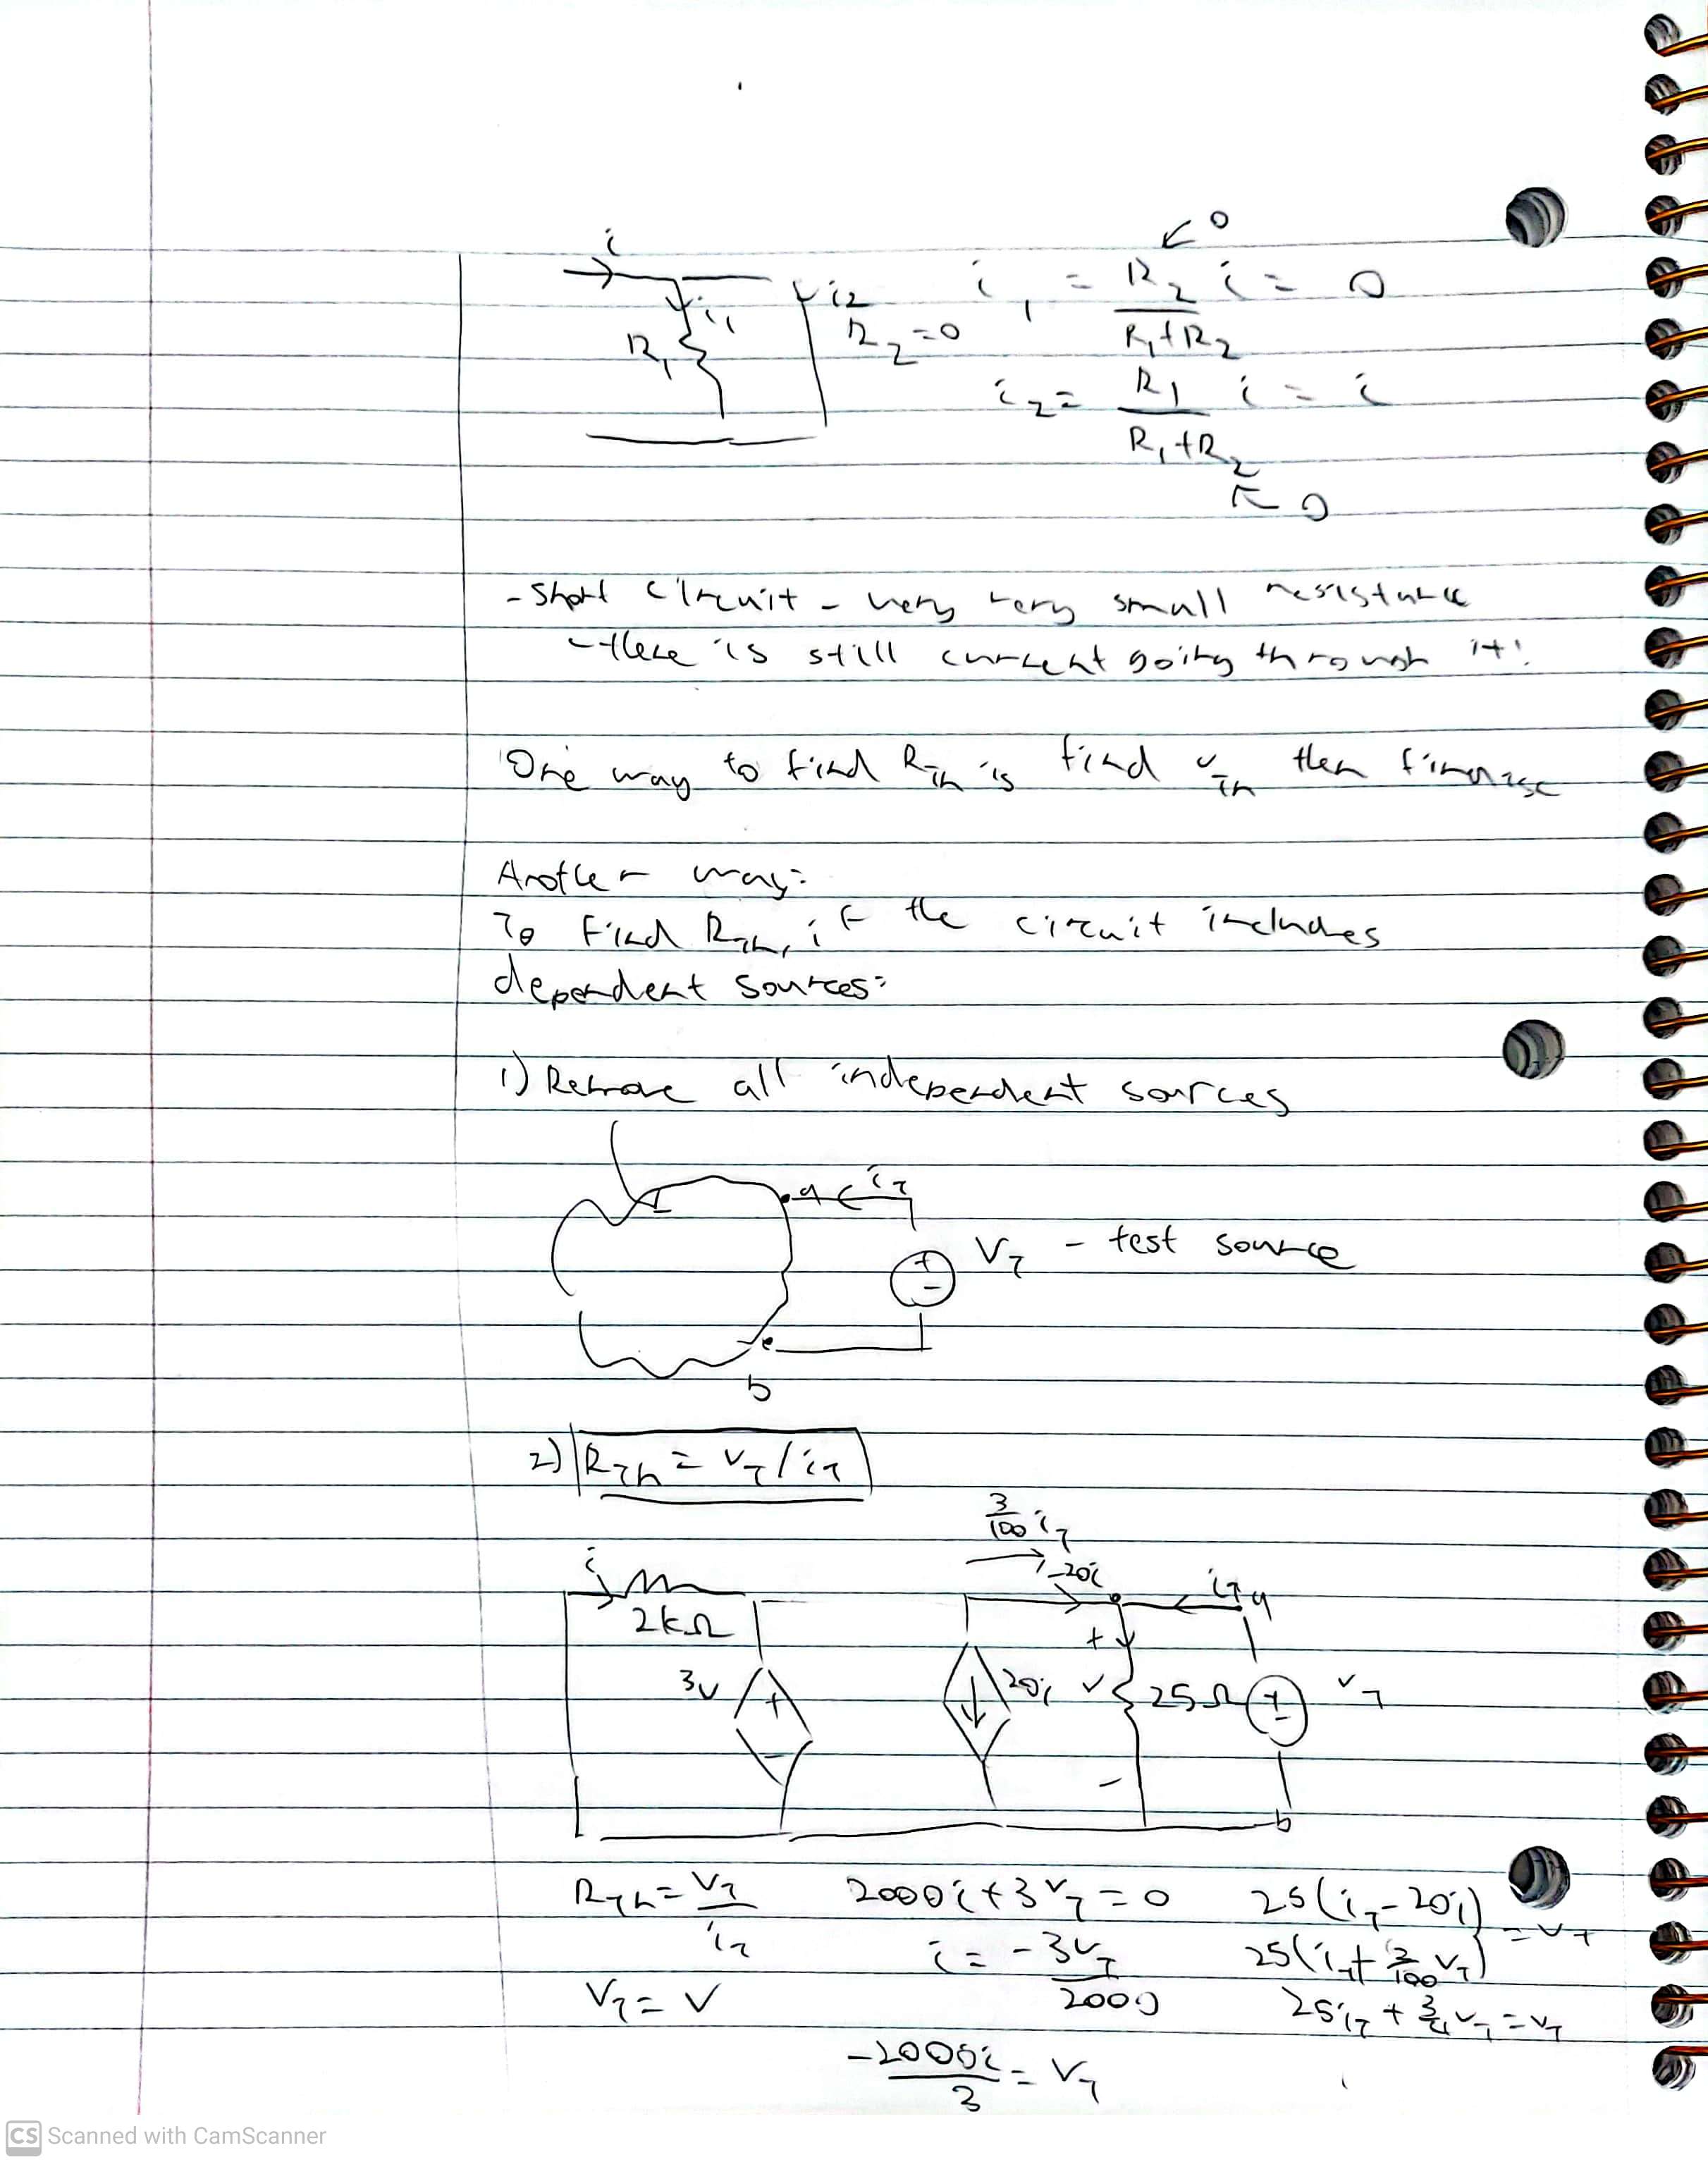 i
i₁
R₁
i₂
R₂ = 0
i₁ = R₂/(R₁+R₂) i = 0
0
i₂ = R₁/(R₁+R₂) i = i
0
- Short circuit - very very small resistance
- there is still current going through it!
One way to find R_Th is find v_Th then
Another way:
To find R_Th, if the circuit includes
dependent sources:
1) Remove all independent sources
a i_T
+
-
V_T - test source
b
2) R_Th = v_T / i_T
3/100 i_T
i
-20i
i_T a
2kΩ
+
3v
+
-
20i
v
25Ω
+
-
v_T
-
b
R_Th = v_T/i_T
2000i + 3v_T = 0
25(i_T - 20i)
= v_T
i = -3v_T/2000
25(i_T + 3/100 v_T)
V_T = V
25i_T + 3/4 v_T = v_T
-2000i/3 = v_T
CS Scanned with CamScanner